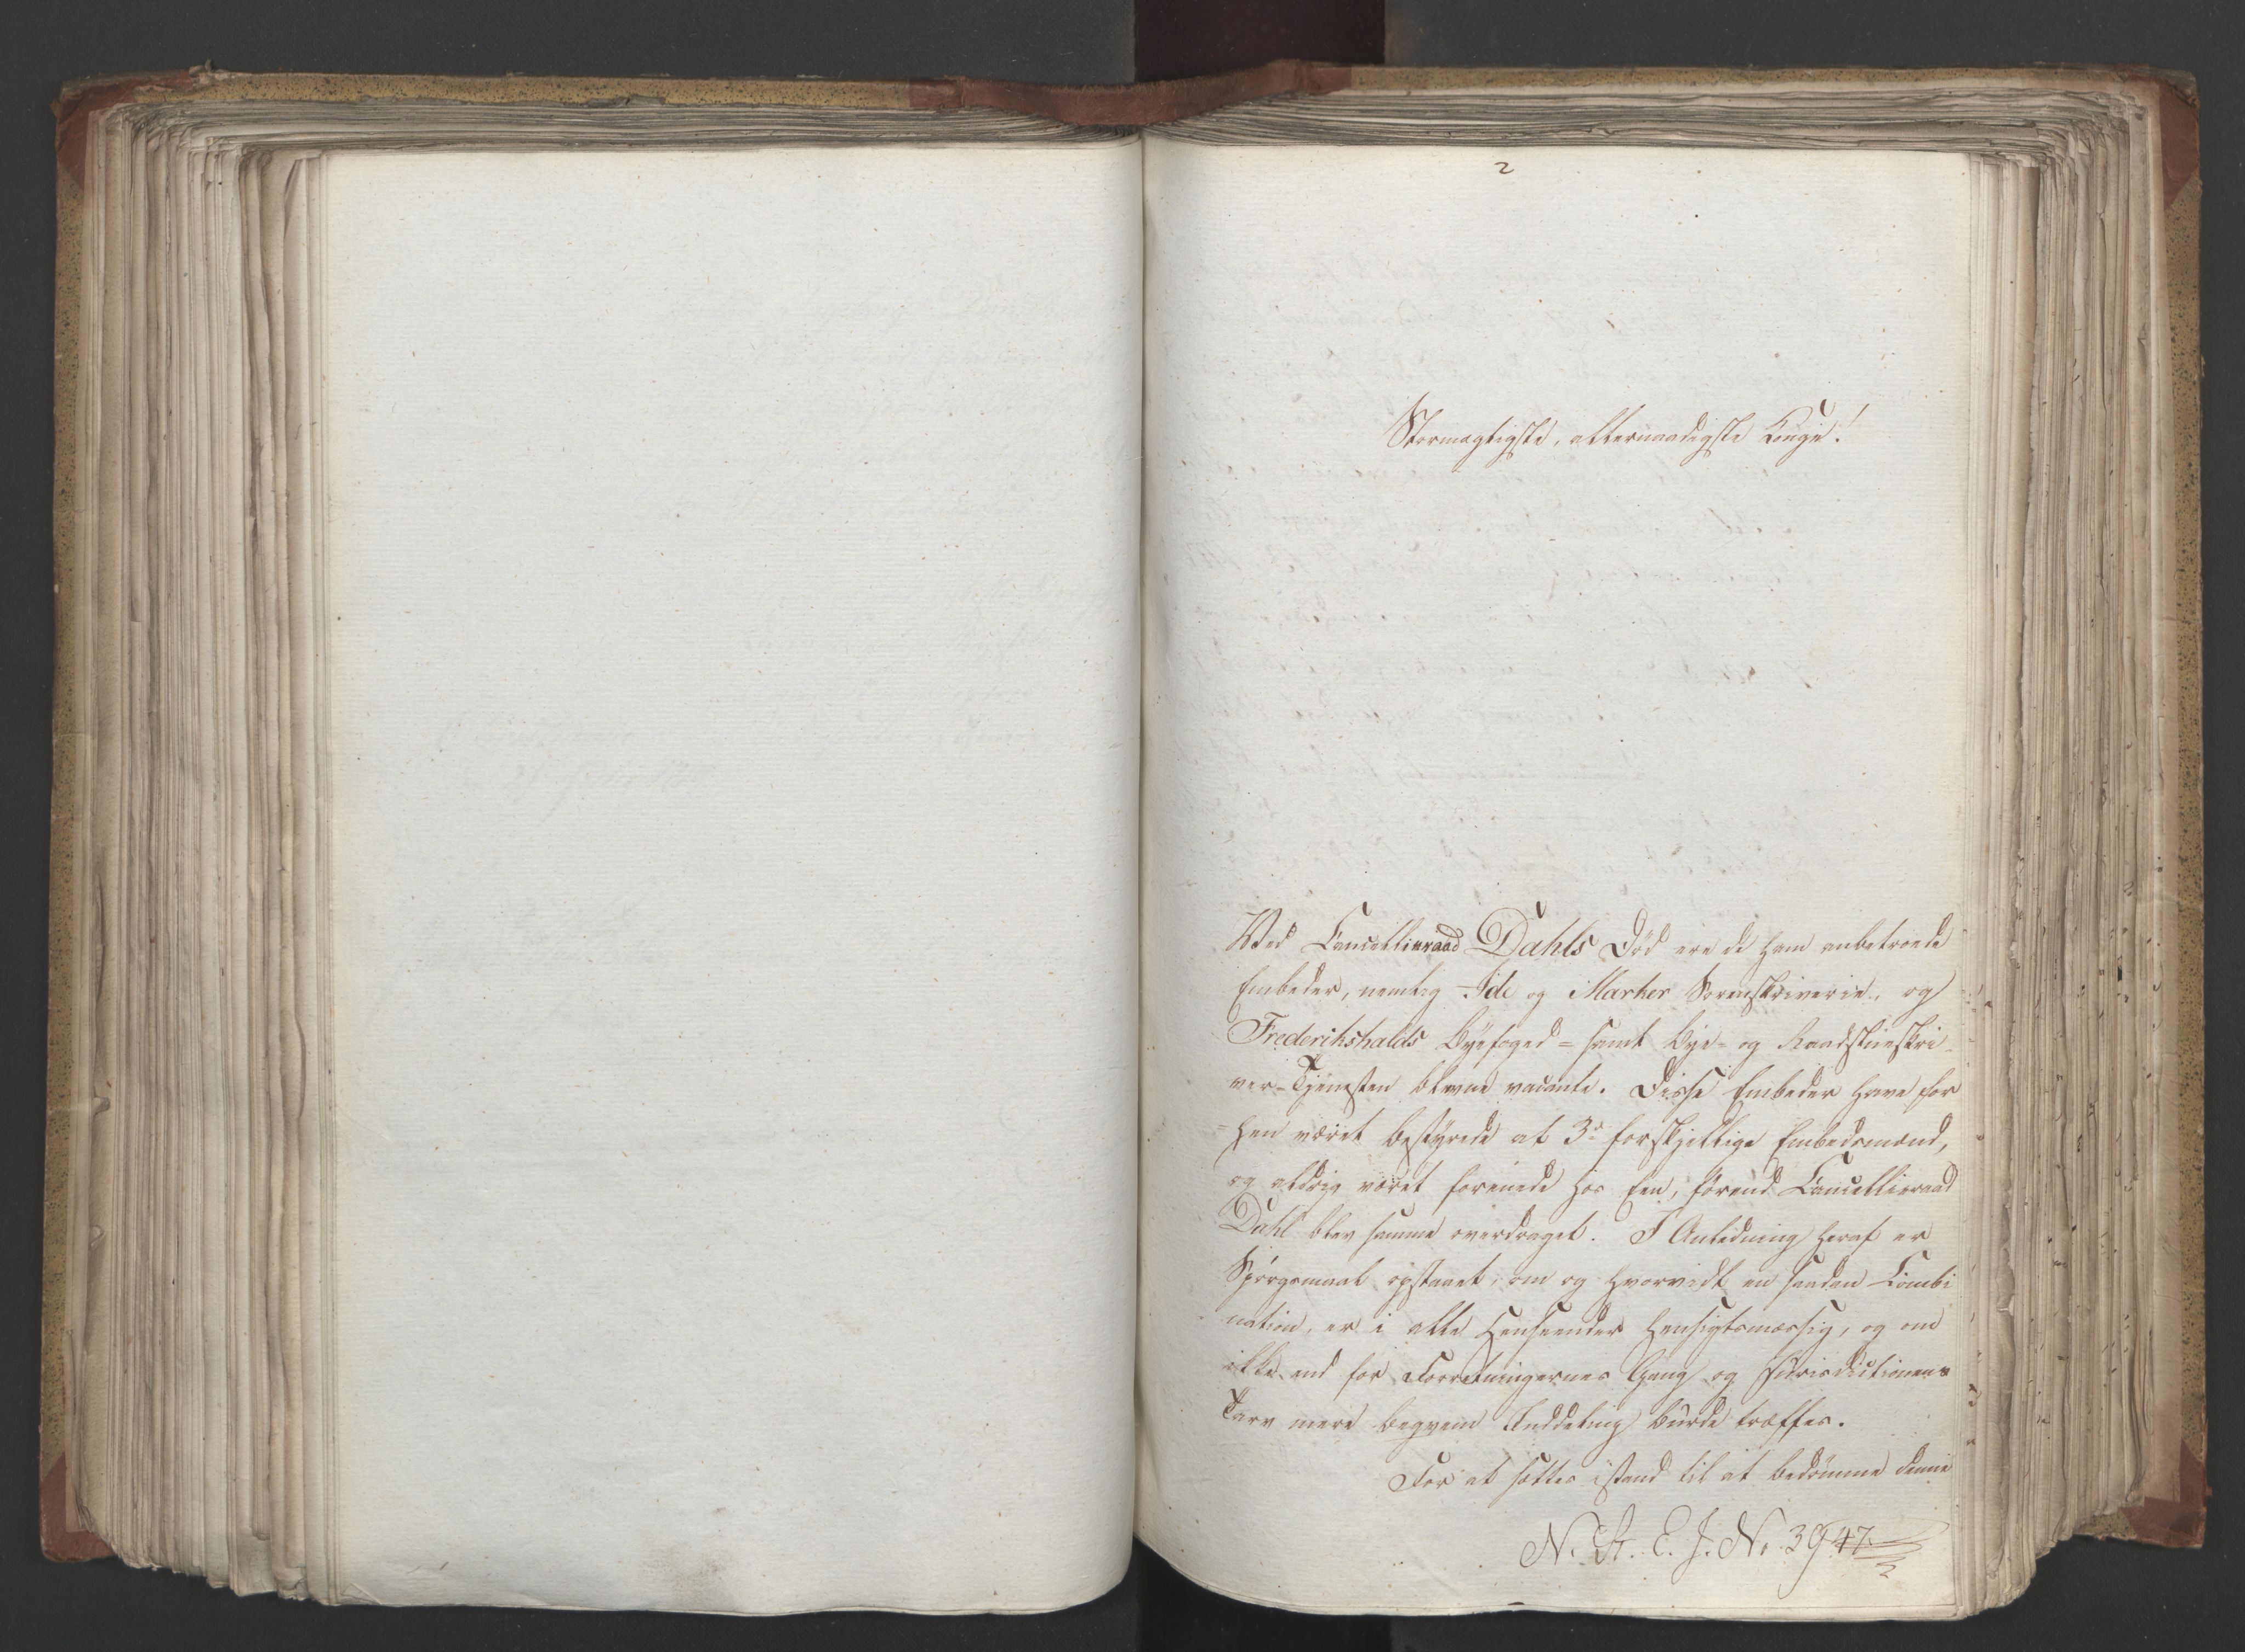 2
Stormægtigste, allernaadigste Konge!
Ved Cancelliraad Dahls Död ere de ham anbetroede
Embeder, nemlig Ide og Marker Sorenskriverie, og
Frederikshalds Byefoged- samt Bye- og Raadstueskri-
ver-Tjenesten blevne vacante. Disse Embeder have for
hen været bestyrede af 3de forskjellige Embedsmænd,
og aldrig været forenede hos Een, förend Cancelliraad
Dahl blev samme overdraget. I Anledning heraf er
Spörgsmaal opstaaet, om og hvorvidt en saadan Combi
nation, er i alle Henseender hensigtsmæssig, og om
ikke end for Forretningernes Gang og Jurisdictionens
Tarv mere beqvem Inddeling burde træffes.
For at sættes istand til at bedömme denne
N. St. E. J. No. 3947